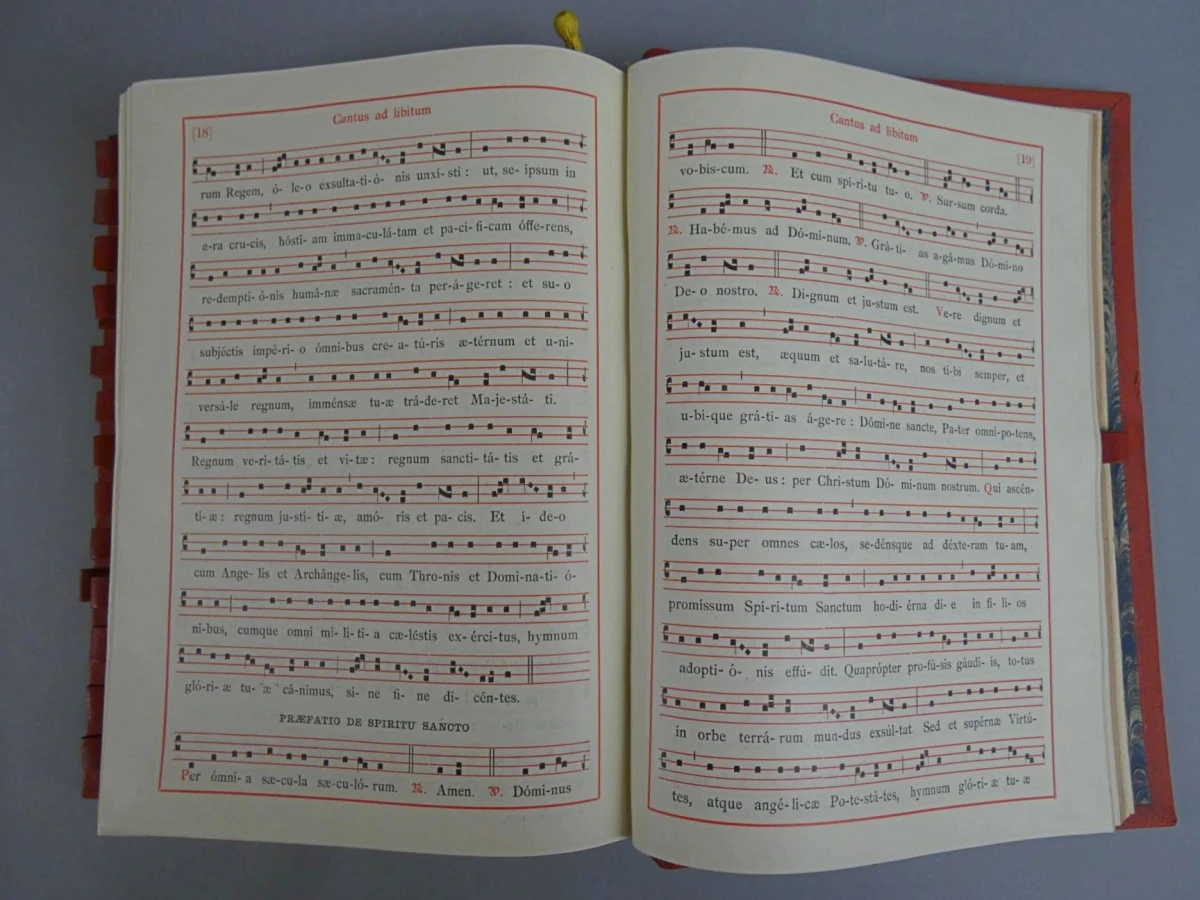 [18]
Cantus ad libitum
rum Regem, ó- le-o exsulta-ti-ó- nis unxí-sti : ut, se- ipsum in
a-ra cru-cis, hósti- am imma-cu-lá-tam et pa-ci- fi-cam ófferens,
re-dempti- ó-nis humánæ sacramén- ta per-á-ge-ret : et su- o
subjéctis impé-ri- o ómni-bus cre- a- tú-ris æ-térnum et u-ni-
versá-le regnum, imménsæ tu-æ trá-de-ret Ma-je-stá- ti.
Regnum ve-ri-tá-tis et vi-tæ : regnum sancti-tá-tis et grá-
ti- æ : regnum ju-sti- ti- æ, amó- ris et pa- cis. Et í- de-o
cum Ange- lis et Archánge-lis, cum Thro-nis et Domi-na-ti- ó-
ni-bus, cumque omni mi- li-ti- a cæ-léstis ex-érci-tus, hymnum
gló-ri- æ tu- æ cá-nimus, si- ne fi- ne di- cén-tes.
PRÆFATIO DE SPIRITU SANCTO
Per ómni- a sæ-cu-la sæ-cu-ló- rum. ℟. Amen. ℣. Dómi-nus
Cantus ad libitum
[19]
vo-bis-cum. ℟. Et cum spi-ri-tu tu- o. ℣. Sur-sum corda.
℟. Ha-bé-mus ad Dó-mi-num. ℣. Grá-ti- as a-gá-mus Dó-mi-no
De- o nostro. ℟. Di-gnum et ju-stum est. Ve-re dignum et
ju- stum est, æquum et sa-lu-tá- re, nos ti-bi semper, et
u-bí-que grá-ti- as á-ge-re : Dómi-ne sancte, Pa-ter omni-po-tens,
æ-térne De- us : per Chri-stum Dó- mi-num nostrum. Qui ascén-
dens su-per omnes cæ-los, se-dénsque ad déxte-ram tu-am,
promissum Spí-ri-tum Sanctum ho-di- érna di- e in fí- li- os
adopti- ó- nis effú- dit. Quaprópter pro-fú-sis gáudi- is, to-tus
in orbe terrá- rum mun-dus exsúl-tat Sed et supérnæ Virtú-
tes, atque angé-li-cæ Po-te-stá-tes, hymnum gló-ri- æ tu- æ